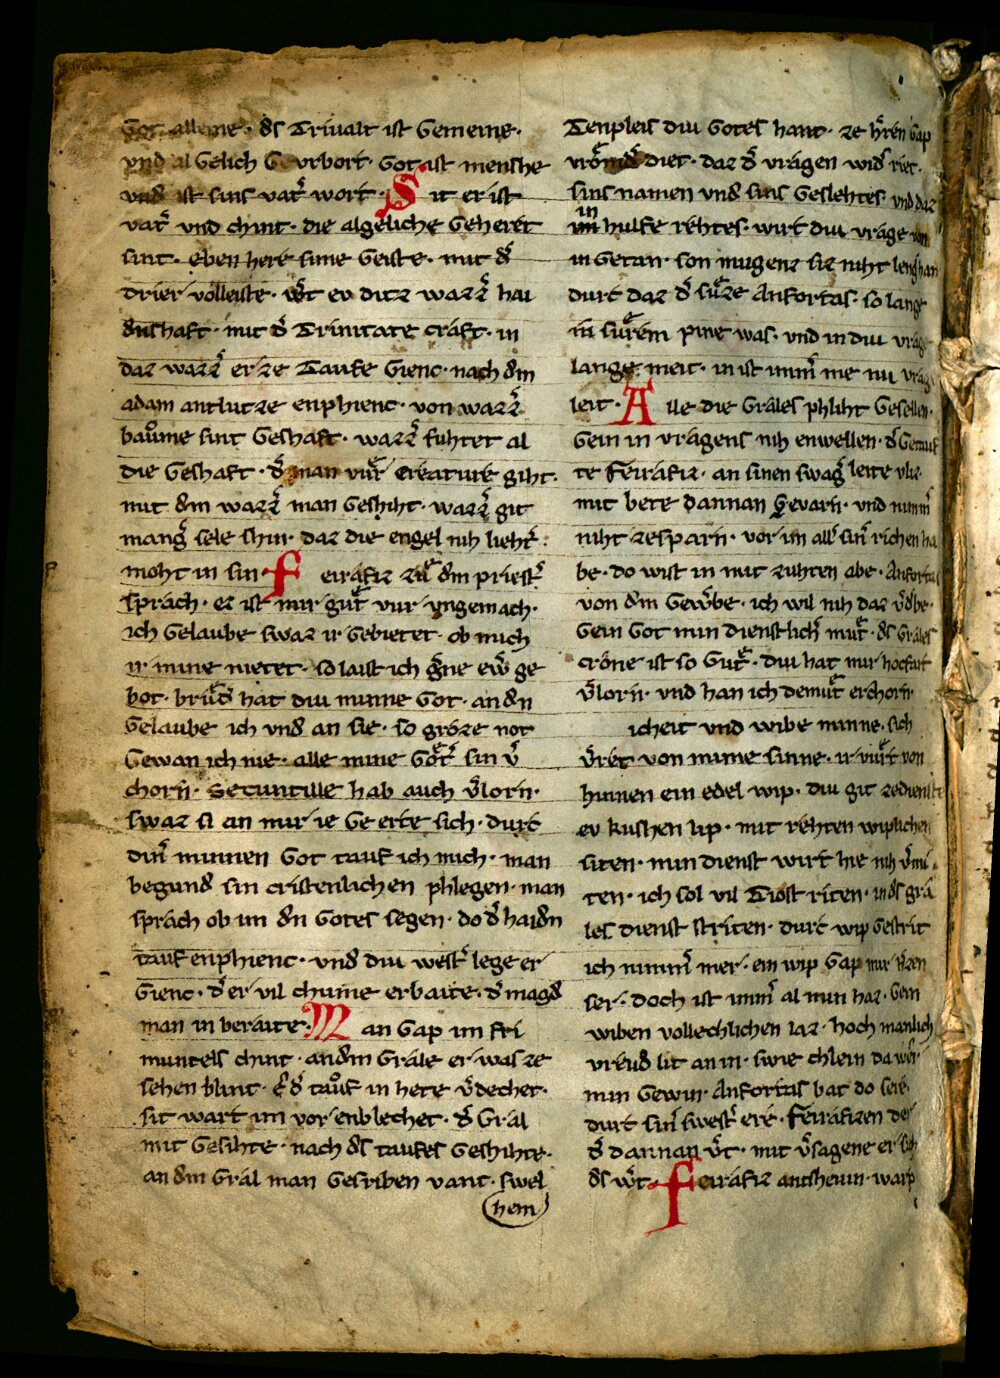 Got alleine · d͛s Triualt ist Gemeine ·
vnd al Gelich G vrbort · Got ist menshe
vnd ist sins vat͛ wort · Sit er ist
vat͛ vnd chint · die algeliche Geheret
sint · eben here sime Geiste · mit d͛
drier volleiste · w͛t ev ditz wazz͛ hai
d͛nshaft · mit d͛ Trinitate craft · in
daz wazz͛ er ze Taufe Gienc · nach d͛m
adam antlutze enphienc · von wazz͛
baͮme sint Geshaft · wazz͛ fuhtet al
die Geshaft · d͛ man vur creature giht ·
mit d͛m wazz͛ man Geshiht · wazz͛ git
mang͛ sele shin · daz die engel nih lieht͛
moht in sin · Feirafiz zuͤ d͛m priest͛
sprach · ez ist mir guͤt vur vngemach ·
ich Gelaube swaz ir Gebietet · ob mich
ir mine mietet · so laist ich g͛ne ew͛ ge
bot · bruͤd͛ hat diu minne Got · an d͛n
Gelaube ich vnd an sie · so groze not
Gewan ich nie · alle mine Goͤt͛ sin v͛
chorn · Secuntille hab auch v͛lorn ·
swaz si an mir ie Ge erte sich · durt
din͛ minnen Got tauf ich mich · man
begund sin cristenlichen phlegen · man
sprach ob im d͛n Gotes segen · do d͛ haid͛n
tauf enphienc · vnd diu west͛ lege er
Gienc · d͛ er vil chume erbaite · d͛ magd
man in beraite · Man Gap im fri
muntels chint · an d͛m Grale er was ze
sehen blint · e͛ d͛ taͮf in hete v͛dechet ·
sit wart im vor enblechet · d͛ Gral
mit Gesihte · nach d͛s taufes Geshihte ·
an d͛m Gral man Gesriben vant · swel
hem
Tenpleis diu Gotes hant · ze h͛ren Gap
vroͤmd͛ diet · daz d͛ vragen wid͛ riet ·
sins namen vnd sins Geslehtes · vnd daz
im in hulfe rehtes · wirt diu vrage
in Getan · son mugenz siz niht leng͛ han
durt daz d͛ suͤze Anfortas · so lange
in surem pine was · vnd in diu vrage
lange meit · in ist imm͛ me nu vrag
leit · Alle die Grales phliht Gesellen ·
Gein in vragens nih enwellen · d͛ Getauf
te Feirafiz · an sinen swag͛ leite vliz
mit bete dannan Gevarn · vnd nimm͛
niht zesparn · vor im all͛ sin͛ richen ha
be · do wist in mit zuhten abe · Anfortas
von d͛m Gew͛be · ich wil nih daz v͛d͛be ·
Gein Got min dienstlich͛ muͤt · d͛s Grales
crone ist so Guͤt · diu hat mir hochfart
v͛lorn · vnd han ich demuͤt erchorn
icheit vnd wibe minne · sich
v͛ret von mime sinne · ir vuͤrt von
hinnen ein edel wip · diu git zedienst
ev kushen lip · mit rehten wiplichen
siten · min dienst wirt hie nih v͛mi
ten · ich sol vil Tiost riten · in d͛s gra
les dienst striten · durt wip Gestrit
ich nimm͛ mer · ein wip Gap mir h͛zen
ser · doch ist imm͛ al min haz · Gein
wiben vollechlichen laz · hoch manlich
vreud lit an in · swie chlein da wer
min Gewin · Anfortas bat do sere
durt sin͛ swest͛ ere · Feirafizen der
d͛ dannan v͛t · mit v͛sagene er sih
d͛s w͛t · Feirafiz antshevin · warp